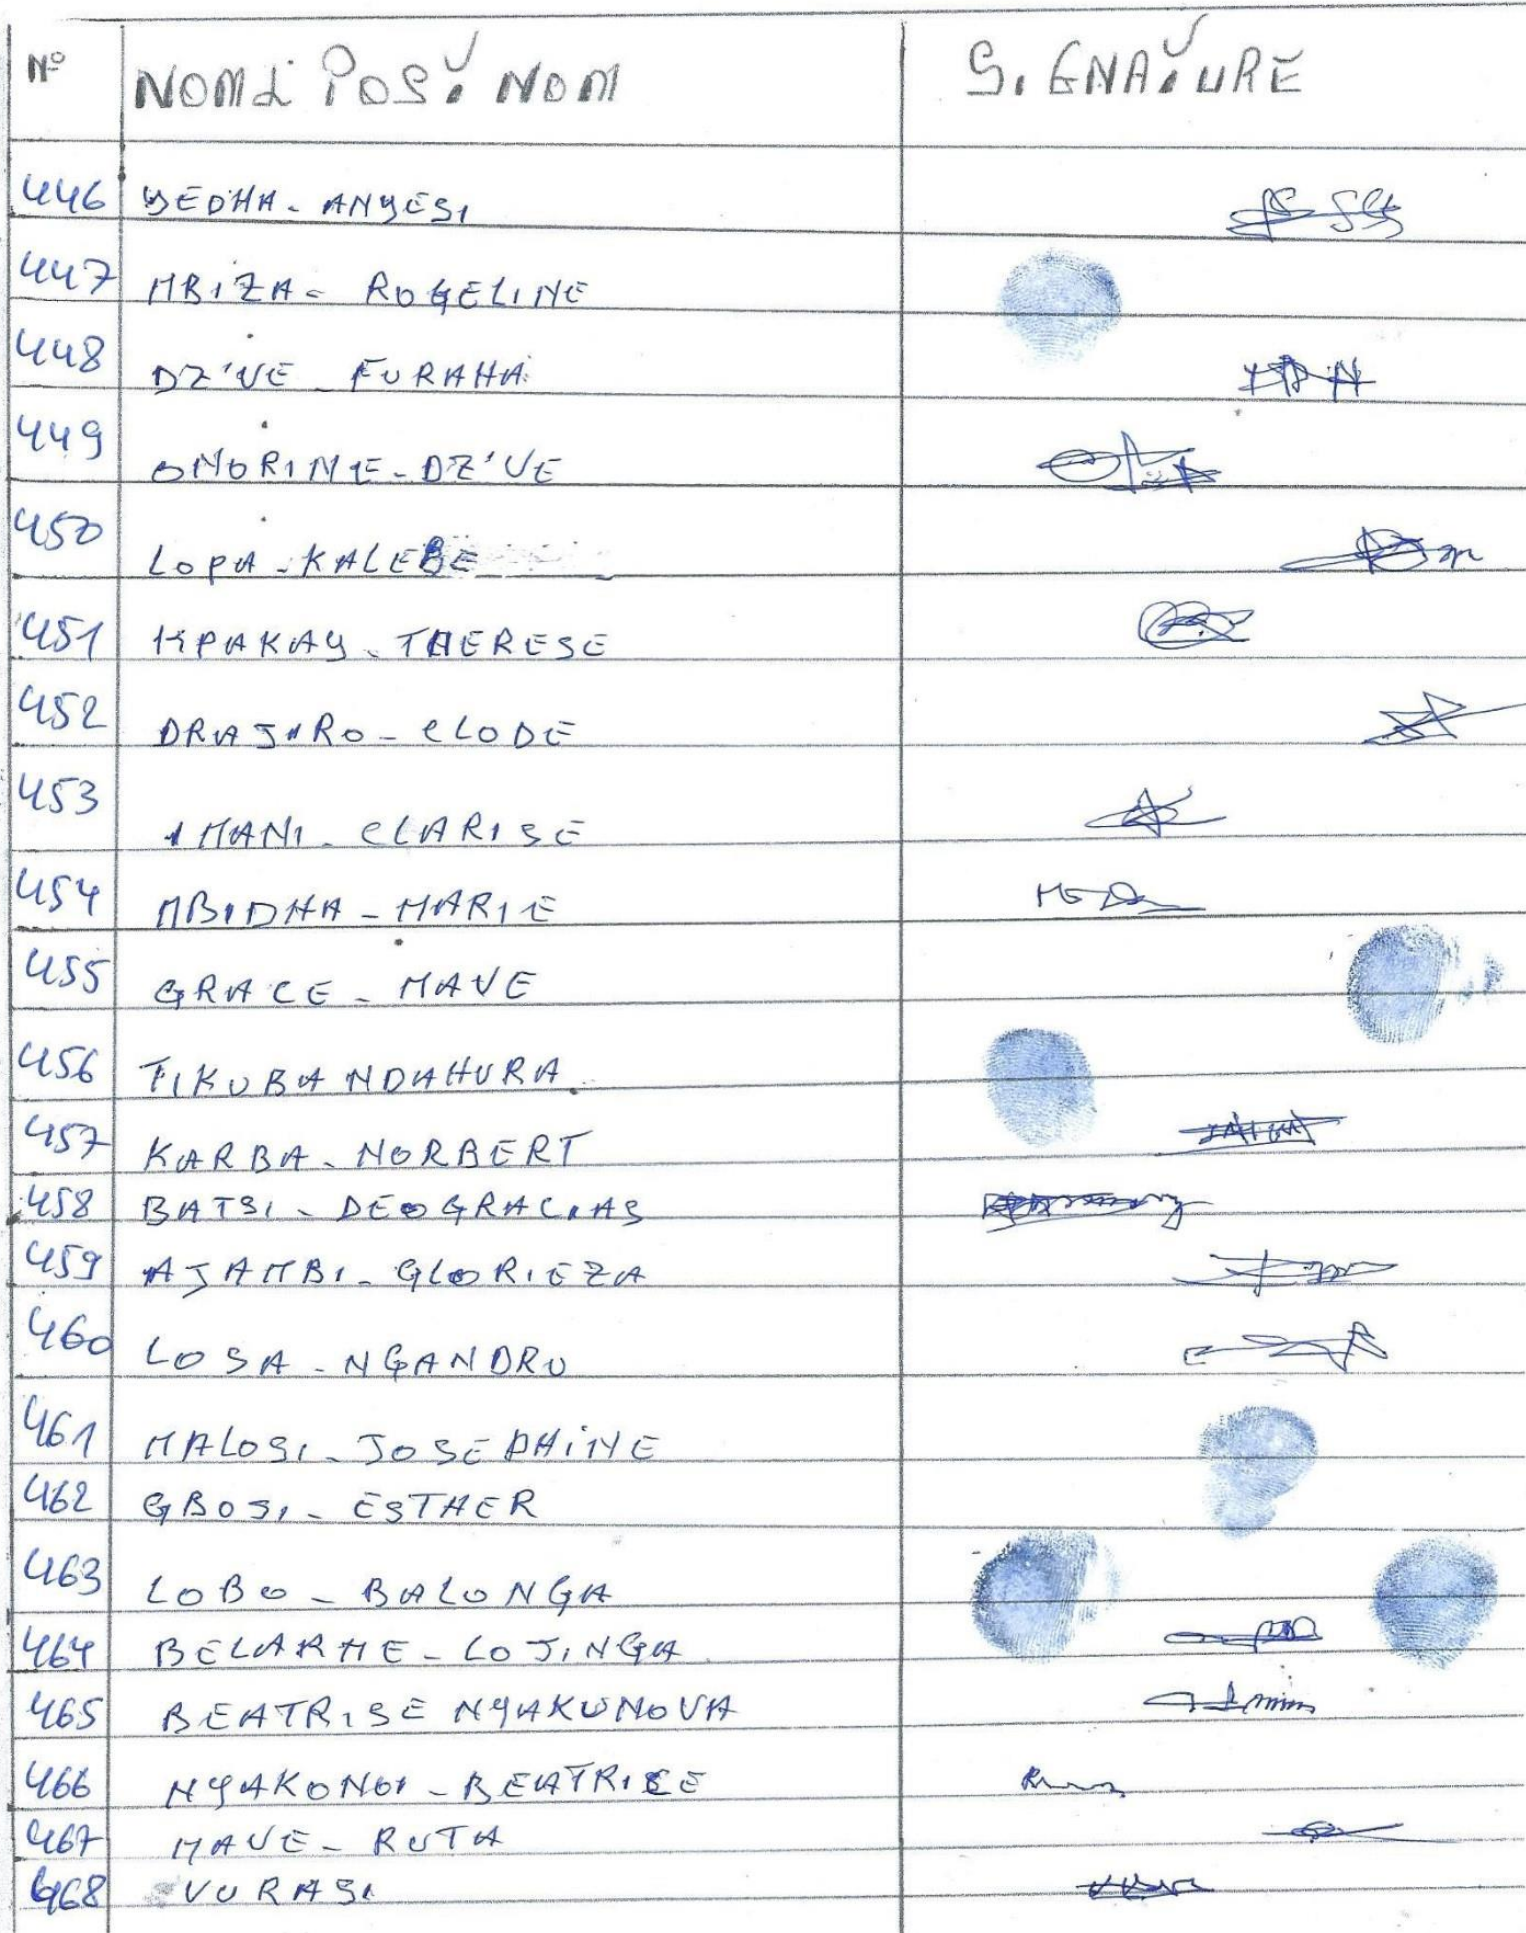 N° NOM & POST NOM SIGNATURE
446 YEDHA - ANYESI
447 MBIZA - ROGELINE
448 DZ'VE - FURAHA
449 ONORINE - DZ'VE
450 LOPA - KALEBE
451 KPAKAY - THERESE
452 DRAJARO - CLODE
453 IMANI - CLARISE
454 MBIDHA - MARIE
455 GRACE - MAVE
456 TIKUBA NDAHURA
457 KARBA - NORBERT
458 BATSI - DEOGRACIAS
459 AJAMBI - GLORIEZA
460 LOSA - NGANDRU
461 MALOSI - JOSEPHINE
462 GBOSI - ESTHER
463 LOBO - BALONGA
464 BELARME - LOJINGA
465 BEATRISE NYAKUNOVA
466 NYAKONGI - BEATRICE
467 MAVE - RUTA
468 VURASI